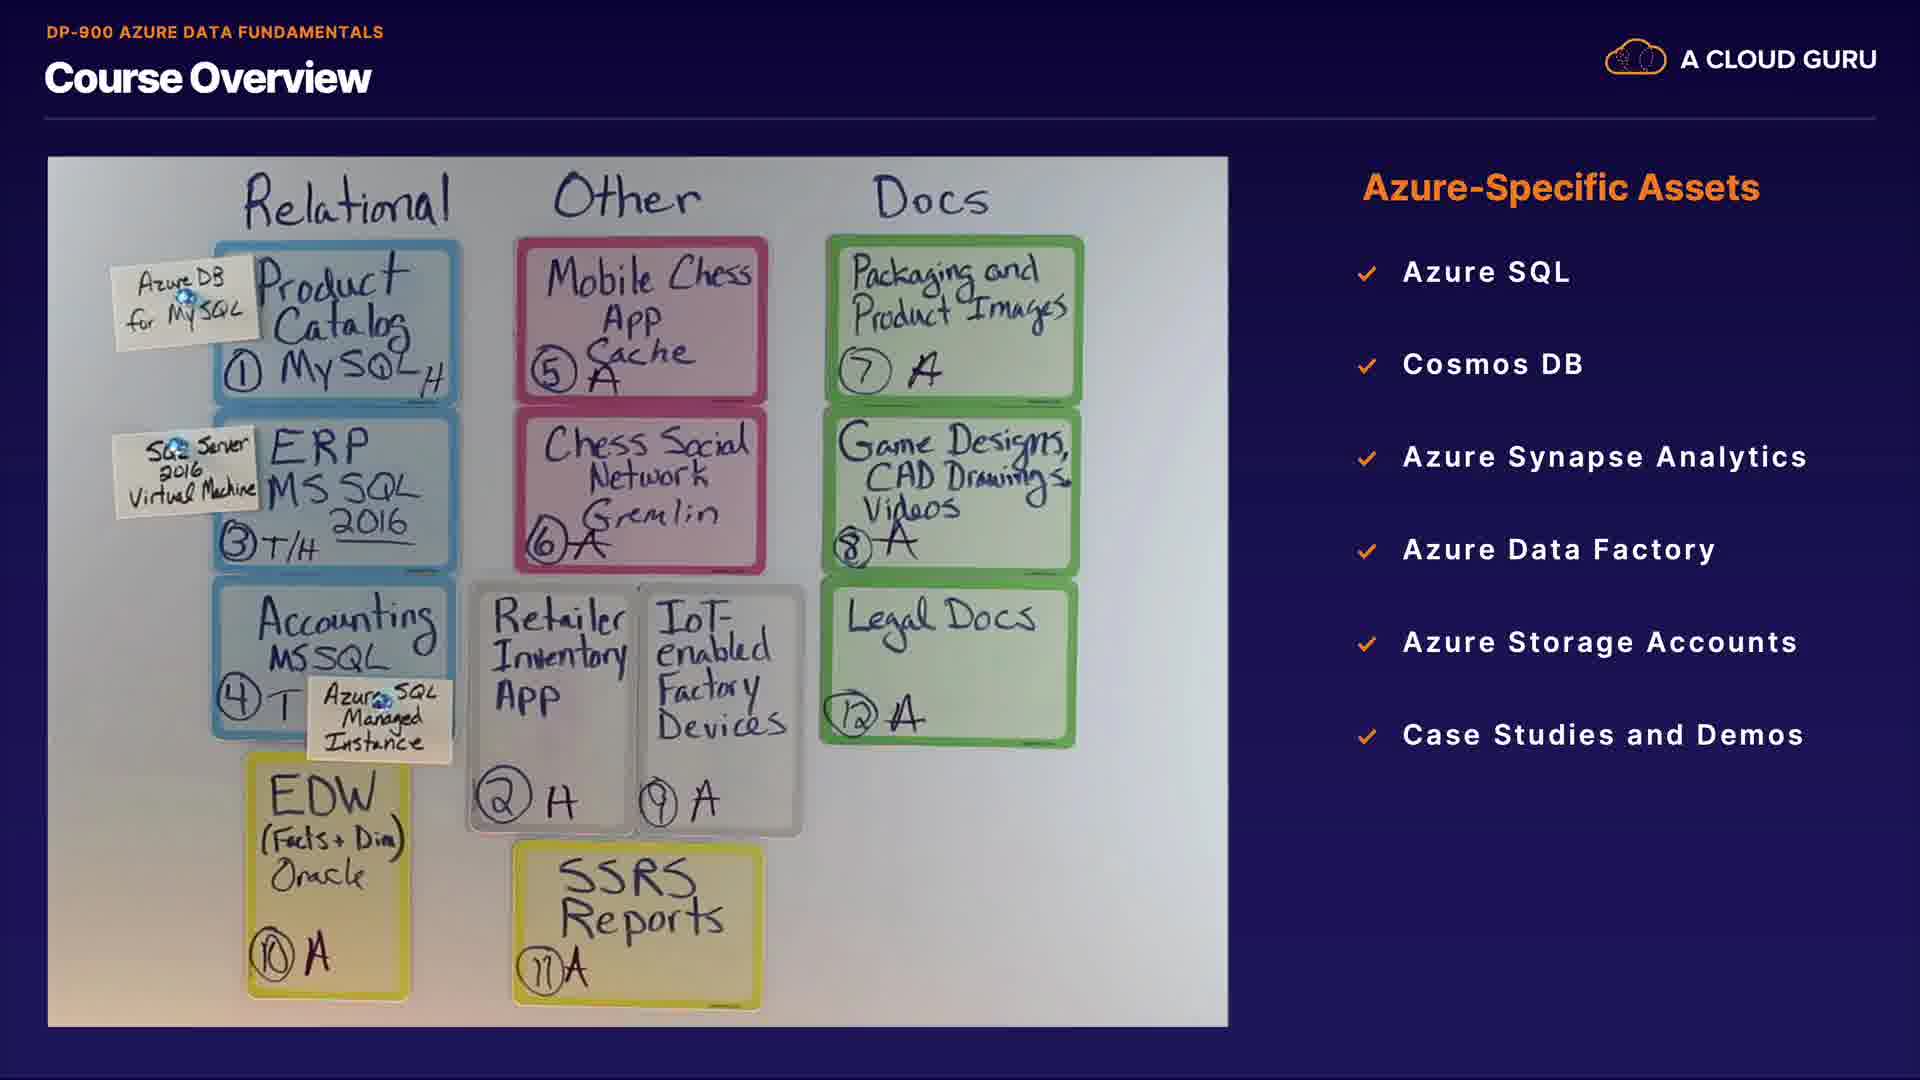 DP-900 AZURE DATA FUNDAMENTALS
Course Overview
A CLOUD GURU
Relational
Azure DB
for MySQL
Product
Catalog
① MySQL H
SQL Server
2016
Virtual Machine
ERP
MS SQL
2016
③ T/H
Accounting
MS SQL
④ T
Azure SQL
Managed
Instance
EDW
(Facts + Dim)
Oracle
⑩ A
Other
Mobile Chess
App
Cache
⑤ A
Chess Social
Network
Gremlin
⑥ A
Retailer
Inventory
App
② H
IoT-
enabled
Factory
Devices
⑨ A
SSRS
Reports
⑪ A
Docs
Packaging and
Product Images
⑦ A
Game Designs,
CAD Drawings,
Videos
⑧ A
Legal Docs
⑫ A
Azure-Specific Assets
✓ Azure SQL
✓ Cosmos DB
✓ Azure Synapse Analytics
✓ Azure Data Factory
✓ Azure Storage Accounts
✓ Case Studies and Demos